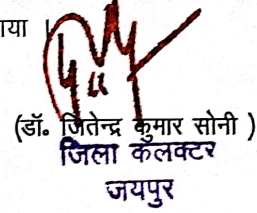 याया ।
(डॉ. जितेन्द्र कुमार सोनी )
जिला कलक्टर
जयपुर